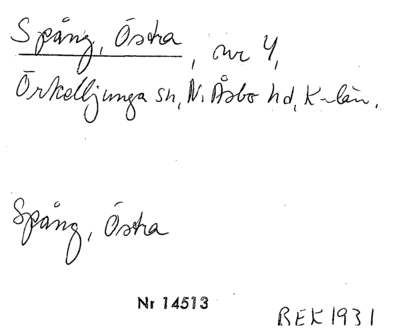 Spång, Östra, nr 4,
Örkelljunga sn, N. Åsbo hd, K-län.
Spång, Östra
Nr 14513
REK 1931